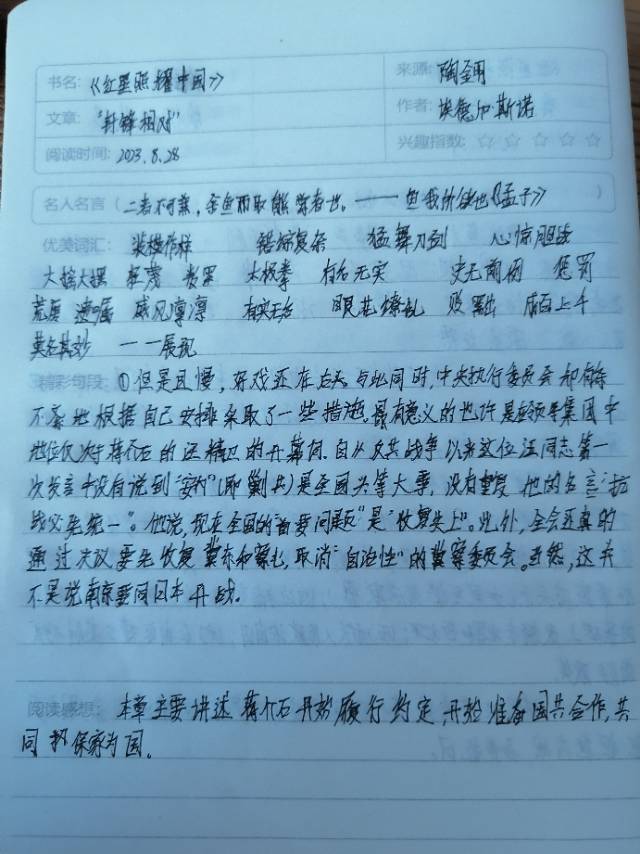 书名: 《红星照耀中国》 来源: 陶至用
文章: "针锋相对" 作者: 埃德加斯诺
阅读时间: 2023.8.28 兴趣指数: ☆ ☆ ☆ ☆ ☆
名人名言 ( 二者不可兼, 舍鱼而取熊掌者也。—— 鱼我所欲也《孟子》 )
优美词汇: 装模作样 错综复杂 猛舞刀剑 心惊胆战
大摇大摆 太极拳 有名无实 史无前例 惩罚
荒唐 遗嘱 威风凛凛 有实无名 眼花缭乱 贬黜 成百上千
莫名其妙 一一展现
精彩句段: ①但是且慢, 好戏还在后头 与此同时, 中央执行委员会却有条
不紊地根据自己安排采取了一些措施 最有意义的也许是领导集团中
地位仅次于蒋介石的汪精卫的开幕词。自从反共战争以来这位汪同志第一
次发言中没有说到"安内"(即剿共)是全国头等大事, 没有重复他的名言"抗
战必先统一"。他说, 现在全国的"首要问题"是"收复失土"。此外, 全会还真的
通过决议要先恢复冀东和察北, 取消"自治性"的冀察委员会。当然, 这并
不是说南京要同日本开战。
阅读感想: 本章主要讲述 蒋介石开始履行约定, 开始准备国共合作, 共
同 保家为国。